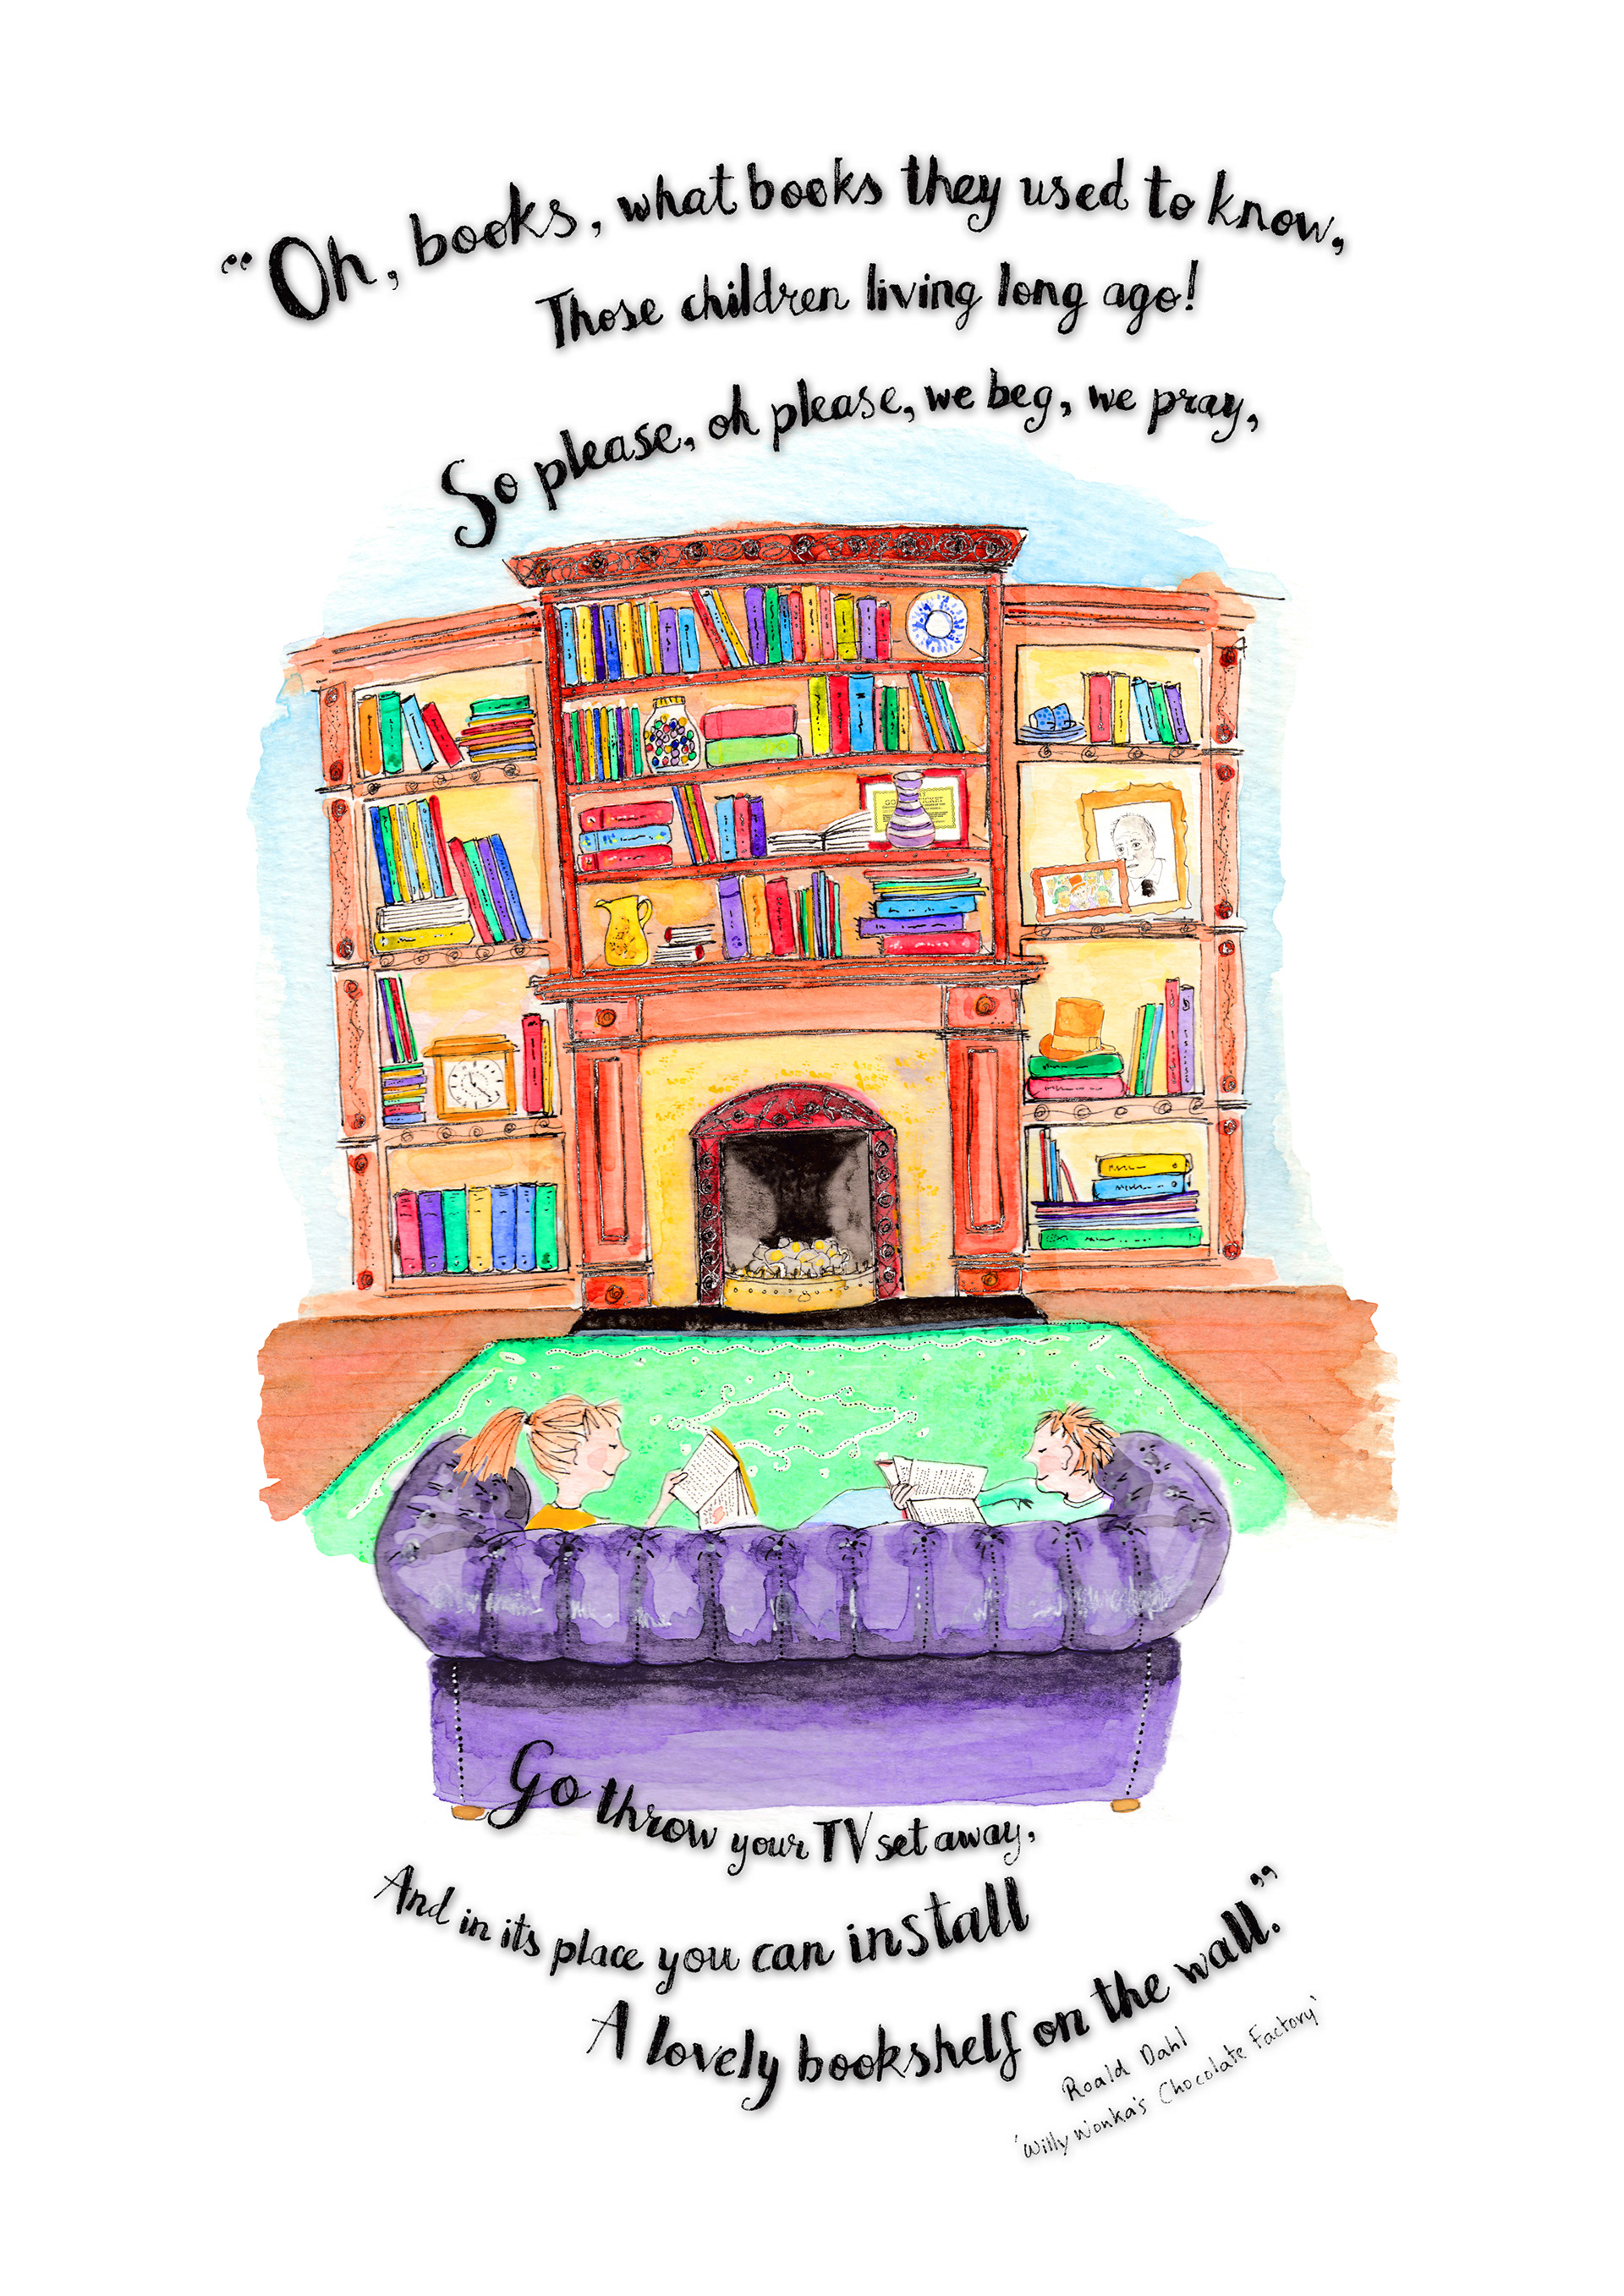 “Oh, books, what books they used to know,
Those children living long ago!
So please, oh please, we beg, we pray,
Go throw your TV set away,
And in its place you can install
A lovely bookshelf on the wall.”
Roald Dahl
'Willy Wonka's Chocolate Factory'